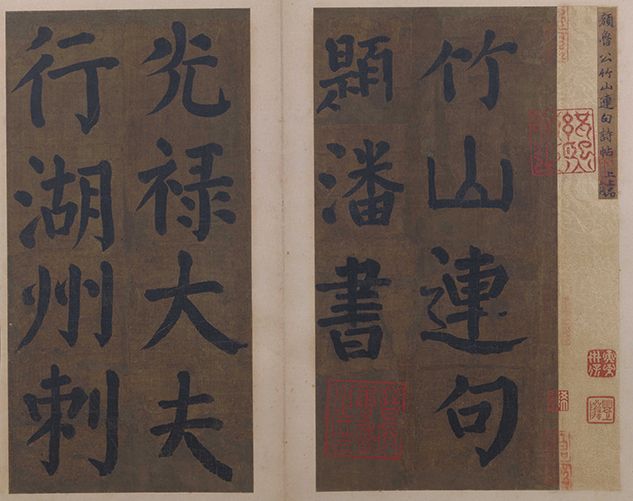 顏魯公竹山連句詩帖 上
紹興
竹山連句
題潘書
光祿大夫
行湖州刺